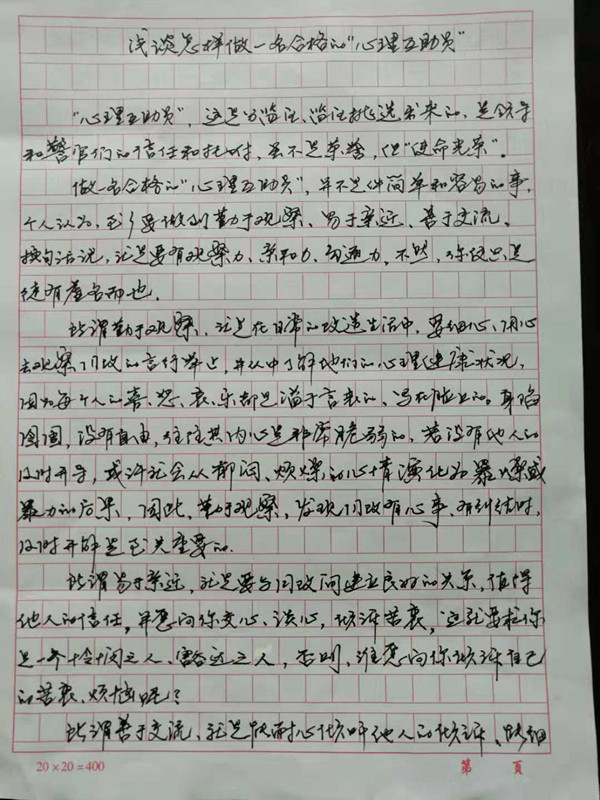 浅谈怎样做一名合格的"心理互助员"
"心理互助员",这是从监区、监区挑选出来的,是领导
和警官们的信任和托付,虽不是荣誉,但"使命光荣"。
做一名合格的"心理互助员",并不是件简单和容易的事,
个人认为,至少要做到勤于观察、易于亲近、善于交流。
换句话说,就是要有观察力、亲和力、沟通力,不然,你便只是
徒有虚名而也。
所谓勤于观察,就是在日常的改造生活中,要细心、用心
去观察同改的言行举止,并从中了解他们的心理健康状况,
因为每个人的喜、怒、哀、乐都是溢于言表的、写在脸上的。身陷
囹圄,没有自由,往往其内心是非常脆弱的,若没有他人的
及时开导,或许就会从郁闷、烦燥的心情演化为暴燥或
暴力的后果,因此,勤于观察,发现同改有心事、有纠结时,
及时开解是至关重要的。
所谓易于亲近,就是要与同改间建立良好的关系,值得
他人的信任,并愿向你交心、谈心,倾诉苦衷,这就要求你
是一个 之人、 之人,否则,谁愿向你倾诉自己
的苦衷、烦恼呢?
所谓善于交流,就是 耐心倾听他人的倾诉、
20×20=400
第 頁